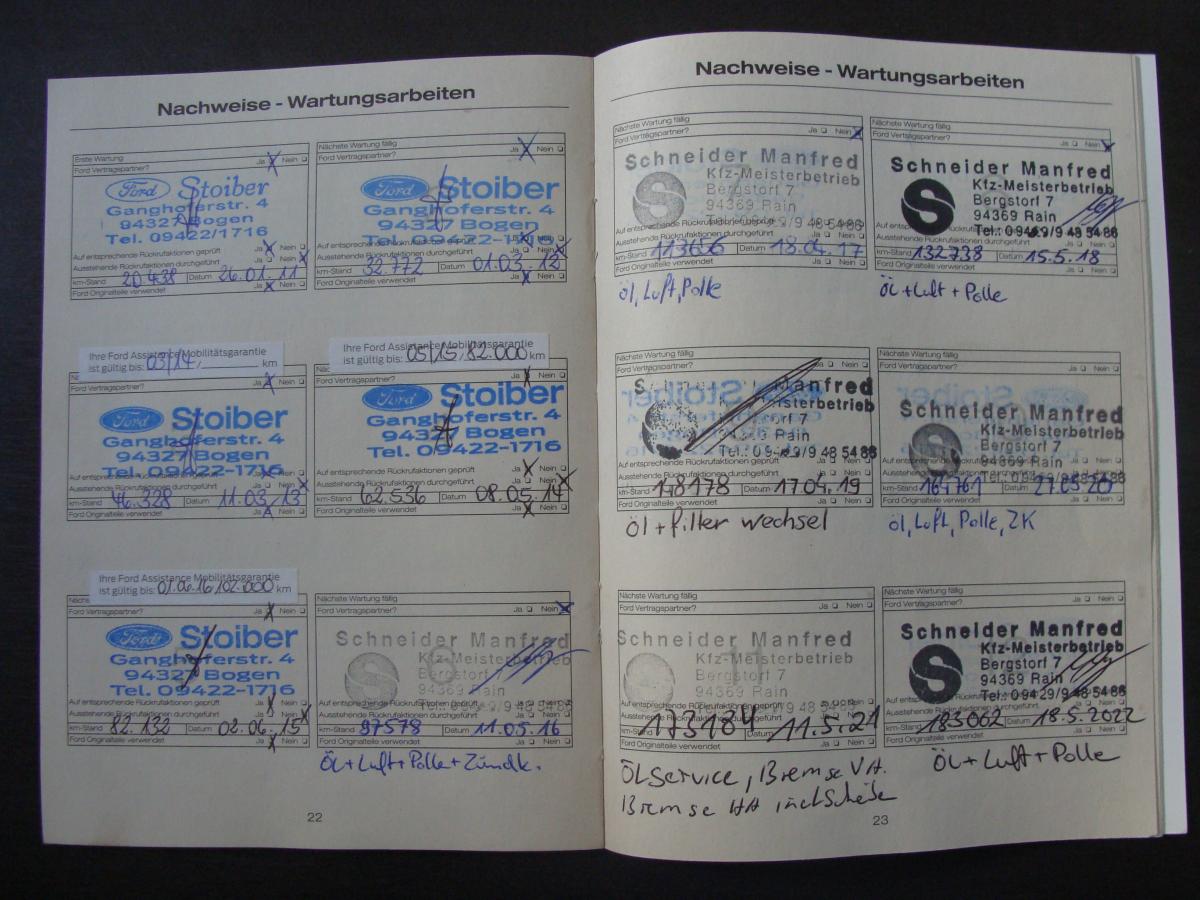 Nachweise - Wartungsarbeiten
Erste Wartung
Ford Vertragspartner? Ja Nein
Ford Stoiber
Ganghoferstr. 4
94327 Bogen
Tel. 09422/1716
Auf entsprechende Rückrufaktionen geprüft Ja Nein
Ausstehende Rückrufaktionen durchgeführt Ja Nein
km-Stand 20.438 Datum 26.01.11
Ford Originalteile verwendet Ja Nein
Nächste Wartung fällig
Ford Vertragspartner? Ja Nein
Ford Stoiber
Ganghoferstr. 4
94327 Bogen
Tel. 09422-1716
Auf entsprechende Rückrufaktionen geprüft Ja Nein
Ausstehende Rückrufaktionen durchgeführt
km-Stand 32.772 Datum 01.03.12
Ford Originalteile verwendet Ja Nein
Ihre Ford Assistance Mobilitätsgarantie
ist gültig bis: 03/14, km
Ford Vertragspartner? Ja Nein
Ford Stoiber
Ganghoferstr. 4
94327 Bogen
Tel. 09422-1716
Auf entsprechende Rückrufaktionen geprüft Ja Nein
Ausstehende Rückrufaktionen durchgeführt Ja Nein
km-Stand 46.328 Datum 11.03.13
Ford Originalteile verwendet Ja Nein
Ihre Ford Assistance Mobilitätsgarantie
ist gültig bis: 05/15, 82.000 km
Ford Vertragspartner? Ja Nein
Ford Stoiber
Ganghoferstr. 4
94327 Bogen
Tel. 09422-1716
Auf entsprechende Rückrufaktionen geprüft Ja Nein
Ausstehende Rückrufaktionen durchgeführt Ja Nein
km-Stand 62.536 Datum 08.05.14
Ford Originalteile verwendet Ja Nein
Ihre Ford Assistance Mobilitätsgarantie
ist gültig bis: 01.06.16, 102.000 km
Ford Vertragspartner? Ja Nein
Ford Stoiber
Ganghoferstr. 4
94327 Bogen
Tel. 09422-1716
Auf entsprechende Rückrufaktionen geprüft Ja Nein
Ausstehende Rückrufaktionen durchgeführt Ja Nein
km-Stand 82.132 Datum 02.06.15
Ford Originalteile verwendet Ja Nein
Nächste Wartung fällig
Ford Vertragspartner? Ja Nein
Schneider Manfred
Kfz-Meisterbetrieb
Bergstorf 7
94369 Rain
Tel.: 09429/9 48 54 88
Auf entsprechende Rückrufaktionen geprüft
Ausstehende Rückrufaktionen durchgeführt Ja Nein
km-Stand 97578 Datum 11.05.16
Ford Originalteile verwendet Ja Nein
Öl + Luft + Polle + Zündk.
22
Nachweise - Wartungsarbeiten
Nächste Wartung fällig
Ford Vertragspartner? Ja Nein
Schneider Manfred
Kfz-Meisterbetrieb
Bergstorf 7
94369 Rain
Tel.: 09429/9 48 54 88
Auf entsprechende Rückrufaktionen geprüft
Ausstehende Rückrufaktionen durchgeführt Ja Nein
km-Stand 113656 Datum 18.04.17
Ford Originalteile verwendet Ja Nein
Öl, Luft, Polle
Nächste Wartung fällig
Ford Vertragspartner? Ja Nein
Schneider Manfred
Kfz-Meisterbetrieb
Bergstorf 7
94369 Rain
Tel.: 09429/9 48 54 88
Auf entsprechende Rückrufaktionen geprüft Ja Nein
Ausstehende Rückrufaktionen durchgeführt Ja Nein
km-Stand 132738 Datum 15.5.18
Ford Originalteile verwendet Ja Nein
Öl + Luft + Polle
Nächste Wartung fällig
Ford Vertragspartner? Ja Nein
Schneider Manfred
Kfz-Meisterbetrieb
Bergstorf 7
94369 Rain
Tel.: 09429/9 48 54 88
Auf entsprechende Rückrufaktionen geprüft Ja Nein
Ausstehende Rückrufaktionen durchgeführt Ja Nein
km-Stand 148178 Datum 17.04.19
Ford Originalteile verwendet Ja Nein
Öl + Filter wechsel
Nächste Wartung fällig
Ford Vertragspartner? Ja Nein
Schneider Manfred
Kfz-Meisterbetrieb
Bergstorf 7
94369 Rain
Auf entsprechende Rückrufaktionen geprüft
Ausstehende Rückrufaktionen durchgeführt Ja Nein
km-Stand 161761 Datum 27.05.20
Ford Originalteile verwendet Ja Nein
Öl, Luft, Polle, ZK
Nächste Wartung fällig
Ford Vertragspartner? Ja Nein
Schneider Manfred
Kfz-Meisterbetrieb
Bergstorf 7
94369 Rain
Auf entsprechende Rückrufaktionen geprüft
Ausstehende Rückrufaktionen durchgeführt
km-Stand 173184 Datum 11.5.21
Ford Originalteile verwendet Ja Nein
Öl Service, Bremse VA.
Bremse HA incl Scheibe
Nächste Wartung fällig
Ford Vertragspartner? Ja Nein
Schneider Manfred
Kfz-Meisterbetrieb
Bergstorf 7
94369 Rain
Tel.: 09429/9 48 54 88
Auf entsprechende Rückrufaktionen geprüft
Ausstehende Rückrufaktionen durchgeführt Ja Nein
km-Stand 183062 Datum 18.5.2022
Ford Originalteile verwendet Ja Nein
Öl + Luft + Polle
23